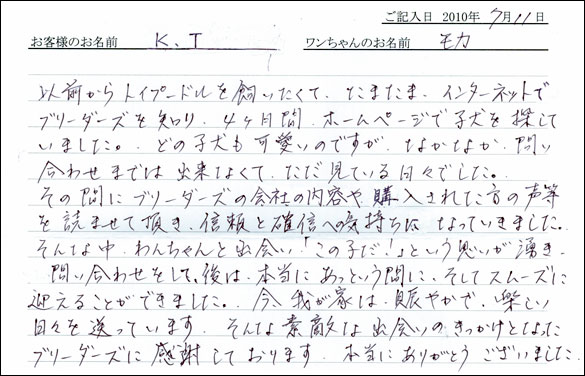 ご記入日 2010年 7月11日
お客様のお名前 K.T ワンちゃんのお名前 モカ
以前からトイプードルを飼いたくて、たまたま、インターネットで
ブリーダーズを知り、4ヶ月間、ホームページで子犬を探して
いました。どの子犬も可愛いのですが、なかなか、問い
合わせまでは出来なくて、ただ見ている日々でした。
その間にブリーダーズの会社の内容や、購入された方の声等
を読ませて頂き、信頼と確信への気持ちに なっていきました。
そんな中、わんちゃんと出会い「この子だ!」という思いが湧き、
問い合わせをして、後は、本当にあっという間に、そしてスムーズに
迎えることができました。今、我が家は、賑やかで、楽しい
日々を送っています。そんな素敵な出会いのきっかけとなった
ブリーダーズに感謝しております。本当にありがとうございました。